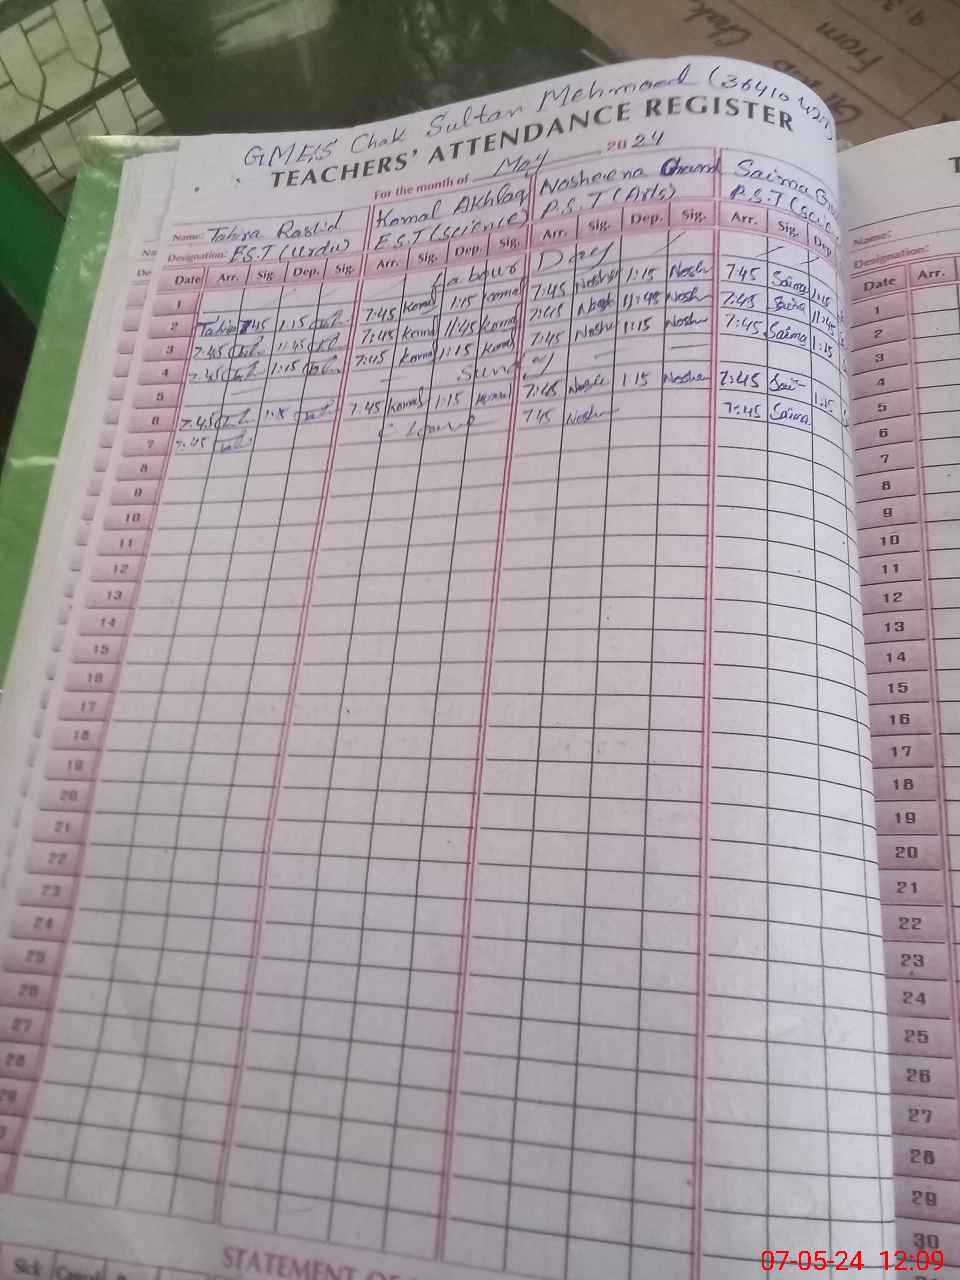 GMES Chak Sultan Mehmood (36410
TEACHERS' ATTENDANCE REGISTER
For the month of May 2024
Name: Tahira Rashid Komal Akhlaq Nosheena Saima
Designation: E.S.T (Urdu) E.S.T (Science) P.S.T (Arts) P.S.T (Sci
Date Arr. Sig. Dep. Sig. Arr. Sig. Dep. Sig. Arr. Sig. Dep. Sig. Arr. Sig. Dep
1 Labour Day
2 Tahira 7:45 1:15 7:45 Komal 1:15 Komal 7:45 Noshe 1:15 Nosh 7:45 Saima 1:15
3 7:45 11:45 7:45 Komal 11:45 Komal 7:45 Nosh 11:45 Nosh 7:45 Saima 11:45
4 7:45 1:15 7:45 Komal 1:15 Komal 7:45 Noshe 1:15 Nosh 7:45 Saima 1:15
5 Sunday
6 7:45 1:15 7:45 Komal 1:15 Komal 7:45 Noshe 1:15 Noshee 7:45 Sai 1:15
7 7:45 C Leave 7:45 Noshe 7:45 Saima
8
9
10
11
12
13
14
15
16
17
18
19
20
21
22
23
24
25
26
27
28
29
STATEMENT OF
Sick
Name:
Designation:
Date Arr.
1
2
3
4
5
6
7
8
9
10
11
12
13
14
15
16
17
18
19
20
21
22
23
24
25
26
27
28
29
30
From
07-05-24 12:09